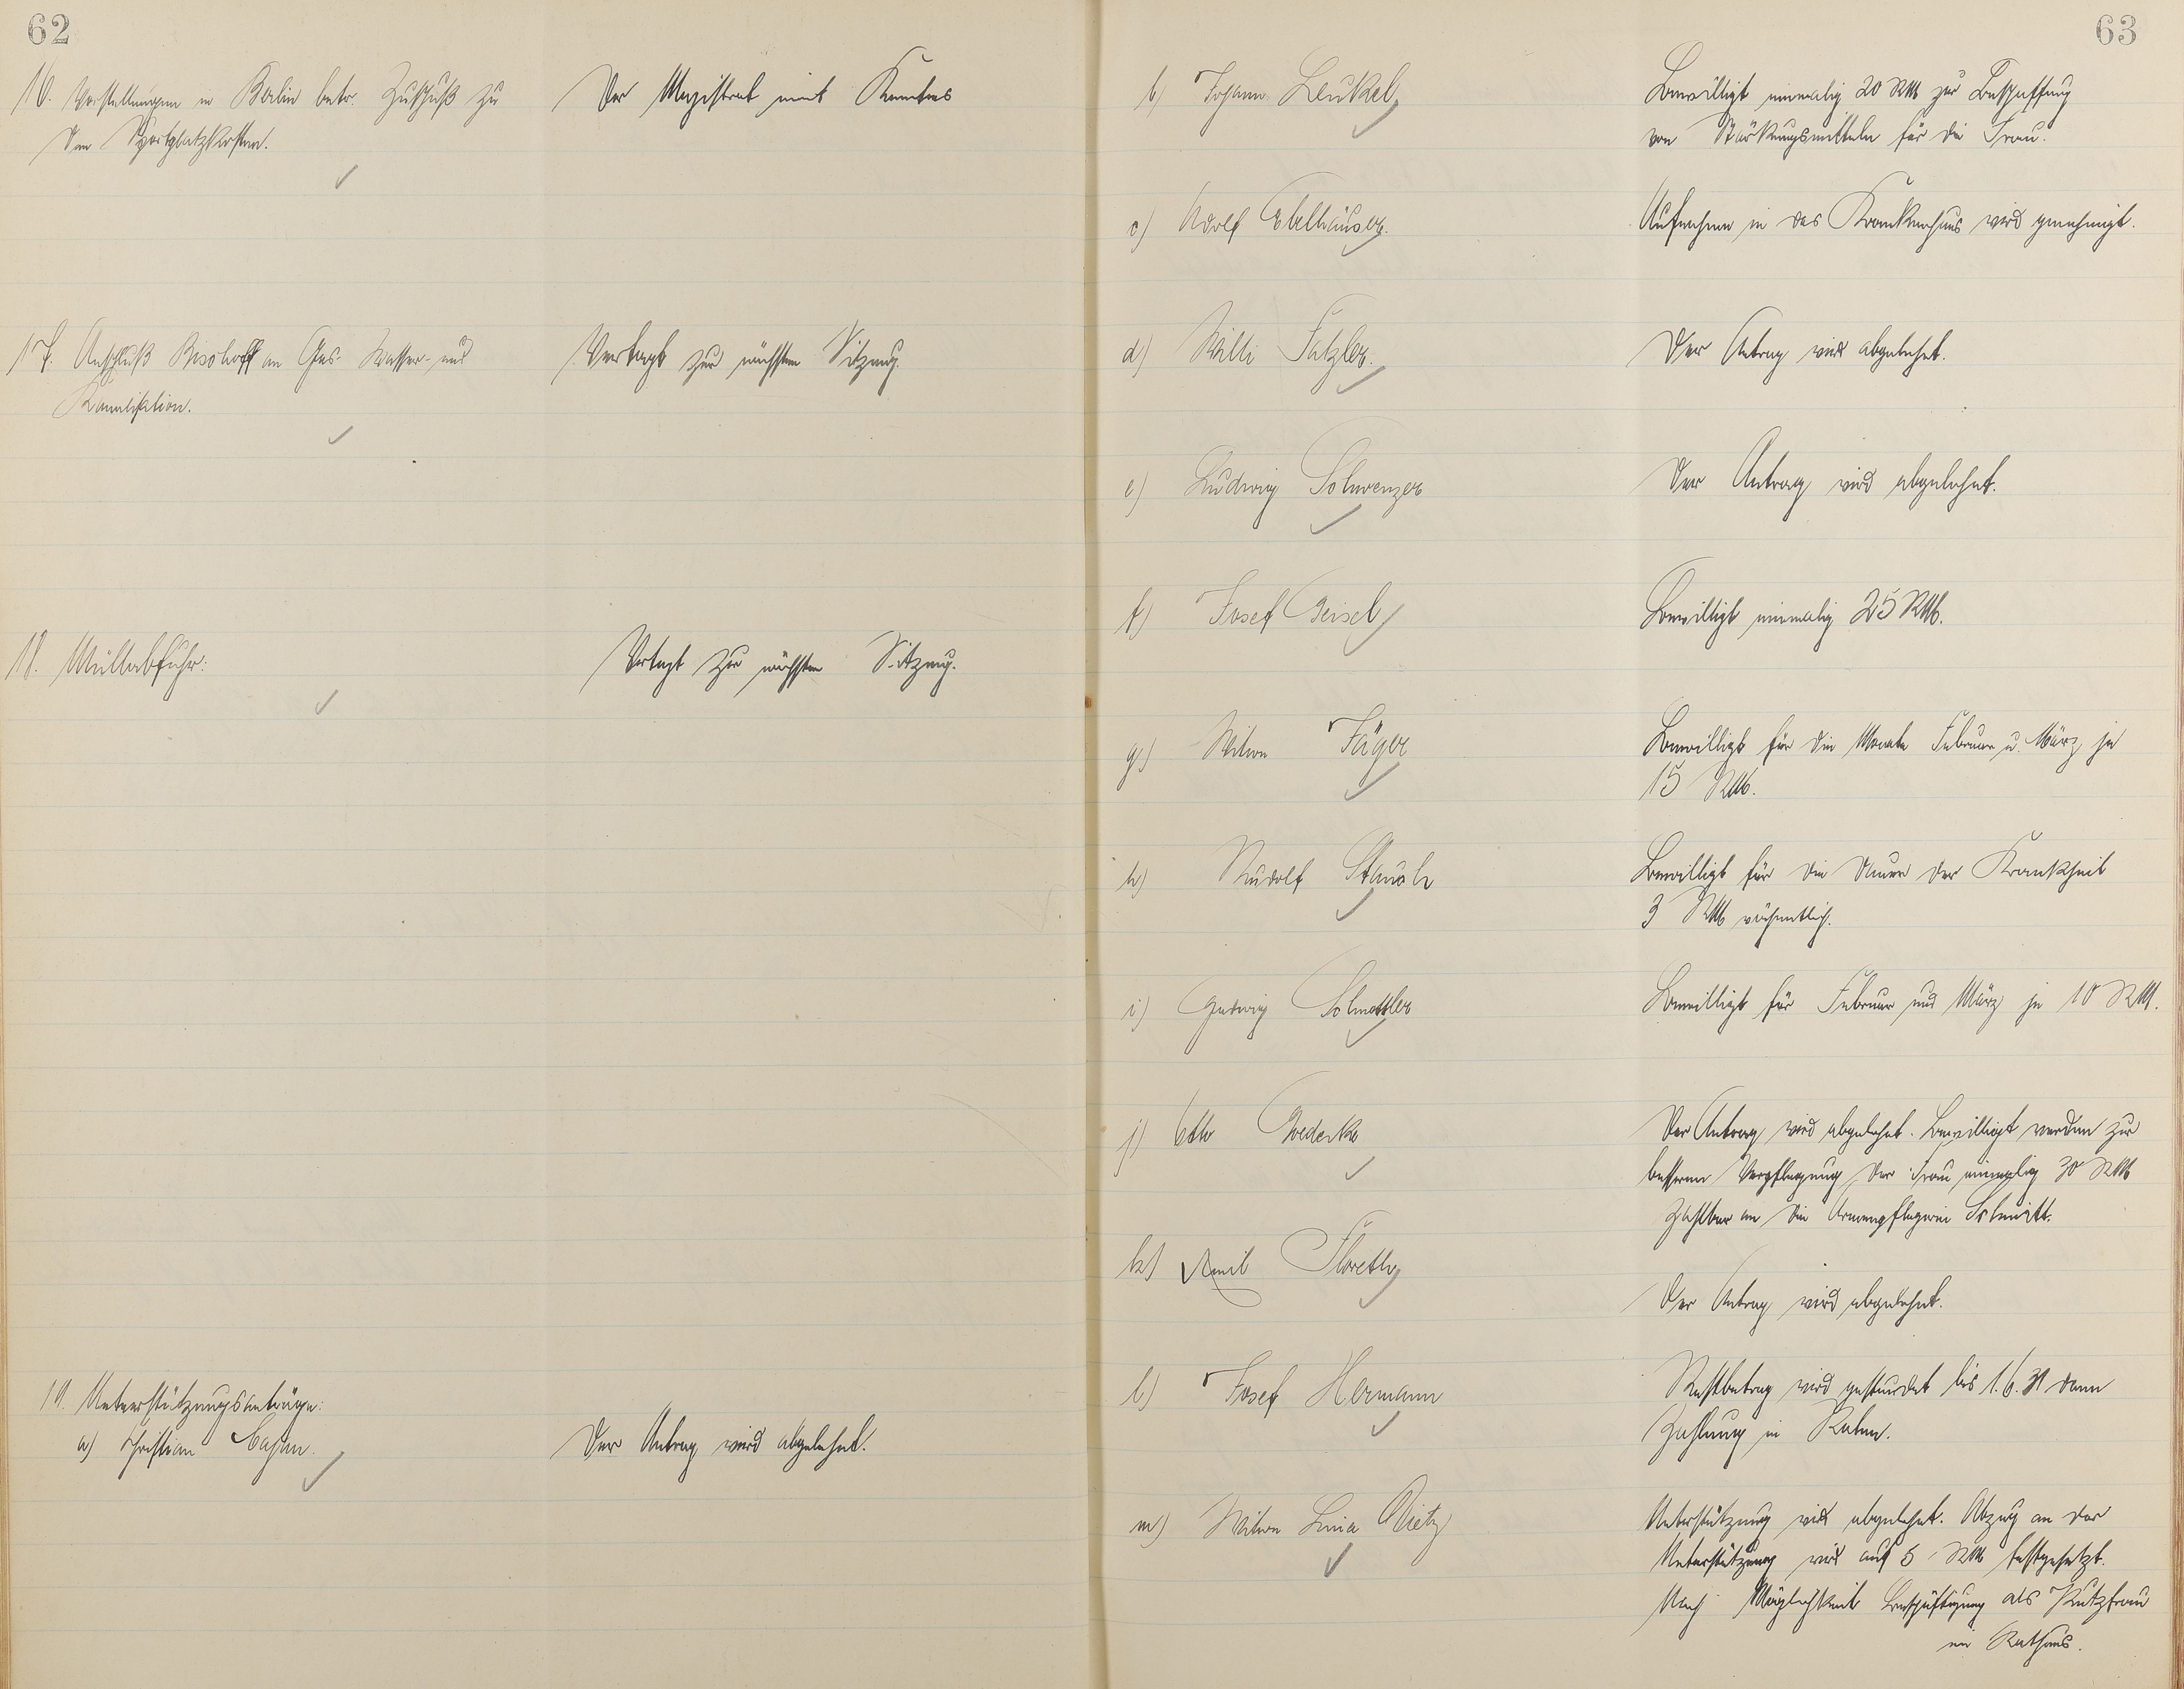 62
16. Vorstellungen in Berlin betr. Zuschuß zu
den Sportplatzkosten.
Der Magistrat nimmt Kenntnis
17. Anschluß Bischoff an Gas- Wasser- und
Kanalisation.
Vertagt zur nächsten Sitzung.
18. Müllabfuhr:
Vertagt zur nächsten Sitzung.
19. Unterstützungsanträge:
a) Christian Cajan.
Der Antrag wird abgelehnt.
63
b) Johann Leukel
Bewilligt einmalig 20 RM zur Beschaffung
von Stärkungsmitteln für die Frau.
c) Adolf Ebelhäuser.
Aufnahme in das Krankenhaus wird genehmigt.
d) Willi Fatzler.
Der Antrag wird abgelehnt.
e) Ludwig Schwenzer
Der Antrag wird abgelehnt.
f) Josef Geisel
Bewilligt einmalig 25 RM.
g) Witwe Jäger
Bewilligt für die Monate Februar u. März je
15 RM.
h) Rudolf Stauch
Bewilligt für die Dauer der Krankheit
3 RM wöchentlich.
i) Hedwig Schmettler
Bewilligt für Februar und März je 10 RM.
j) Otto Goedecke
Der Antrag wird abgelehnt. Bewilligt werden zur
besseren Verpflegung der Frau einmalig 30 RM
zahlbar an die Armenpflegerin Schmitt.
k) Emil Floreth
Der Antrag wird abgelehnt.
l) Josef Hermann
Restbetrag wird gestundet bis 1.6.31 dann
Zahlung in Raten.
m) Witwe Lina Dietz
Unterstützung wird abgelehnt. Abzug an der
Unterstützung wird auf 5 RM festgesetzt.
Nach Möglichkeit Beschäftigung als Putzfrau
im Rathaus.